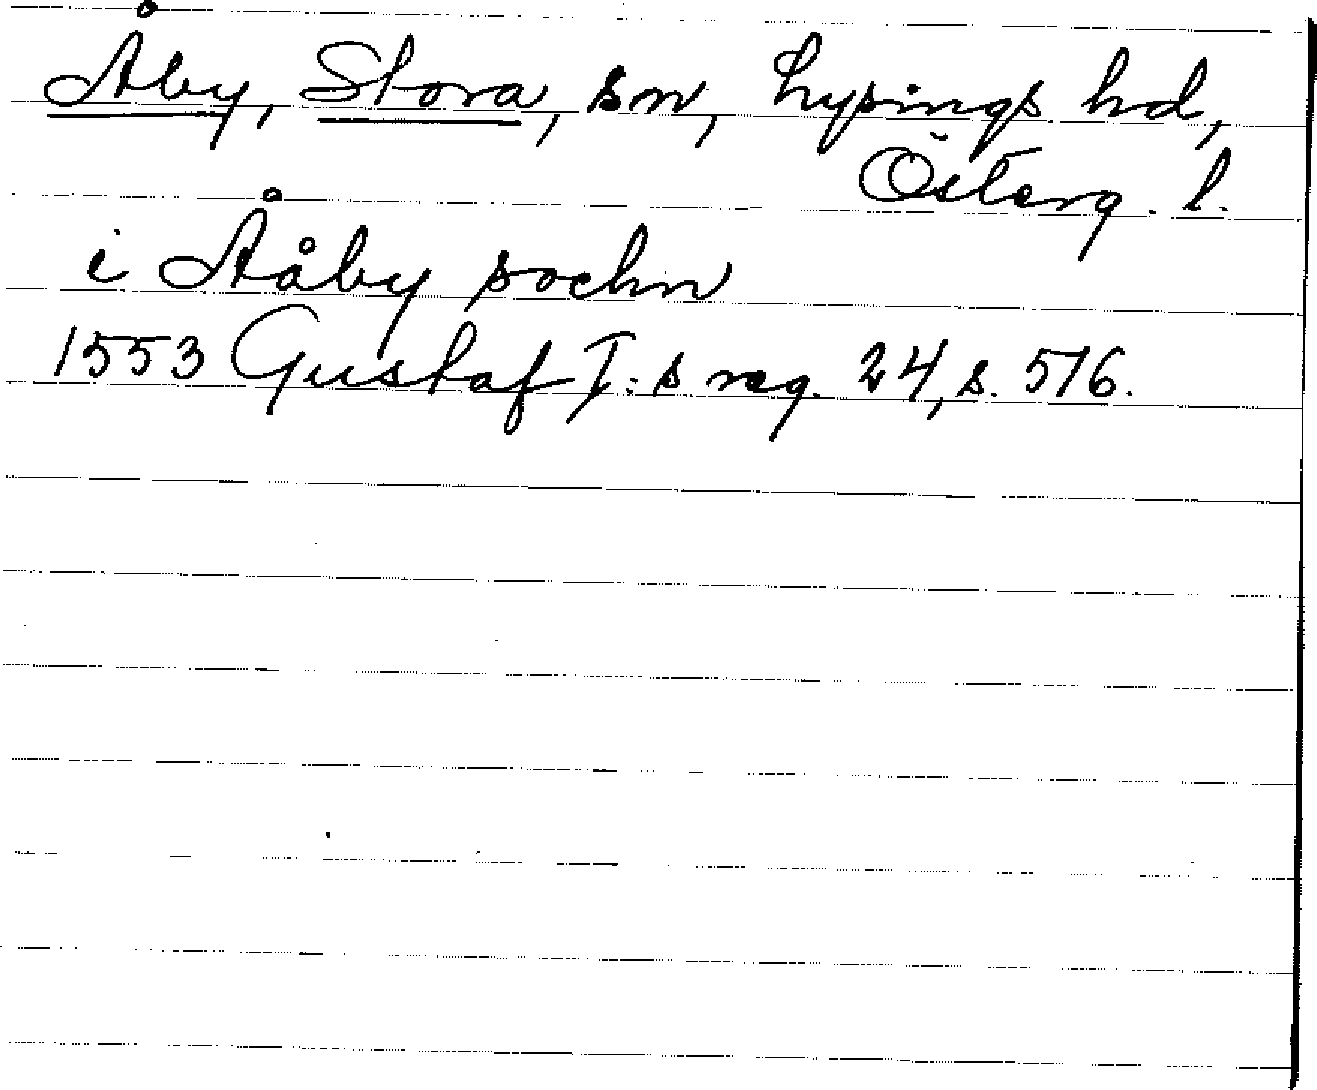 Åby, Stora, sn, Lysings hd,
Österg. l.
i Ååby sochn
1553 Gustaf I:s reg. 24, s. 576.